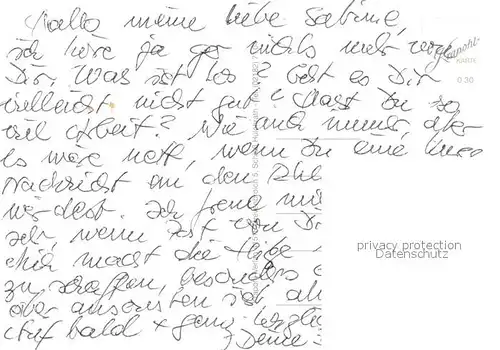 Hallo meine liebe Sabine,
ich höre ja gar nichts mehr von
Dir. Was ist los? Geht es Dir
vielleicht nicht gut? Hast Du so
viel Arbeit? Wie auch immer, aber
es wäre nett, wenn Du eine kurze
Nachricht an den
würdest. Ich freue mich
sehr, wenn ich von D
mich macht die Hitze
zu schaffen, besonders
aber ansonsten ist al
Auf bald + ganz herzlich
Deine
privacy protection
Datenschutz